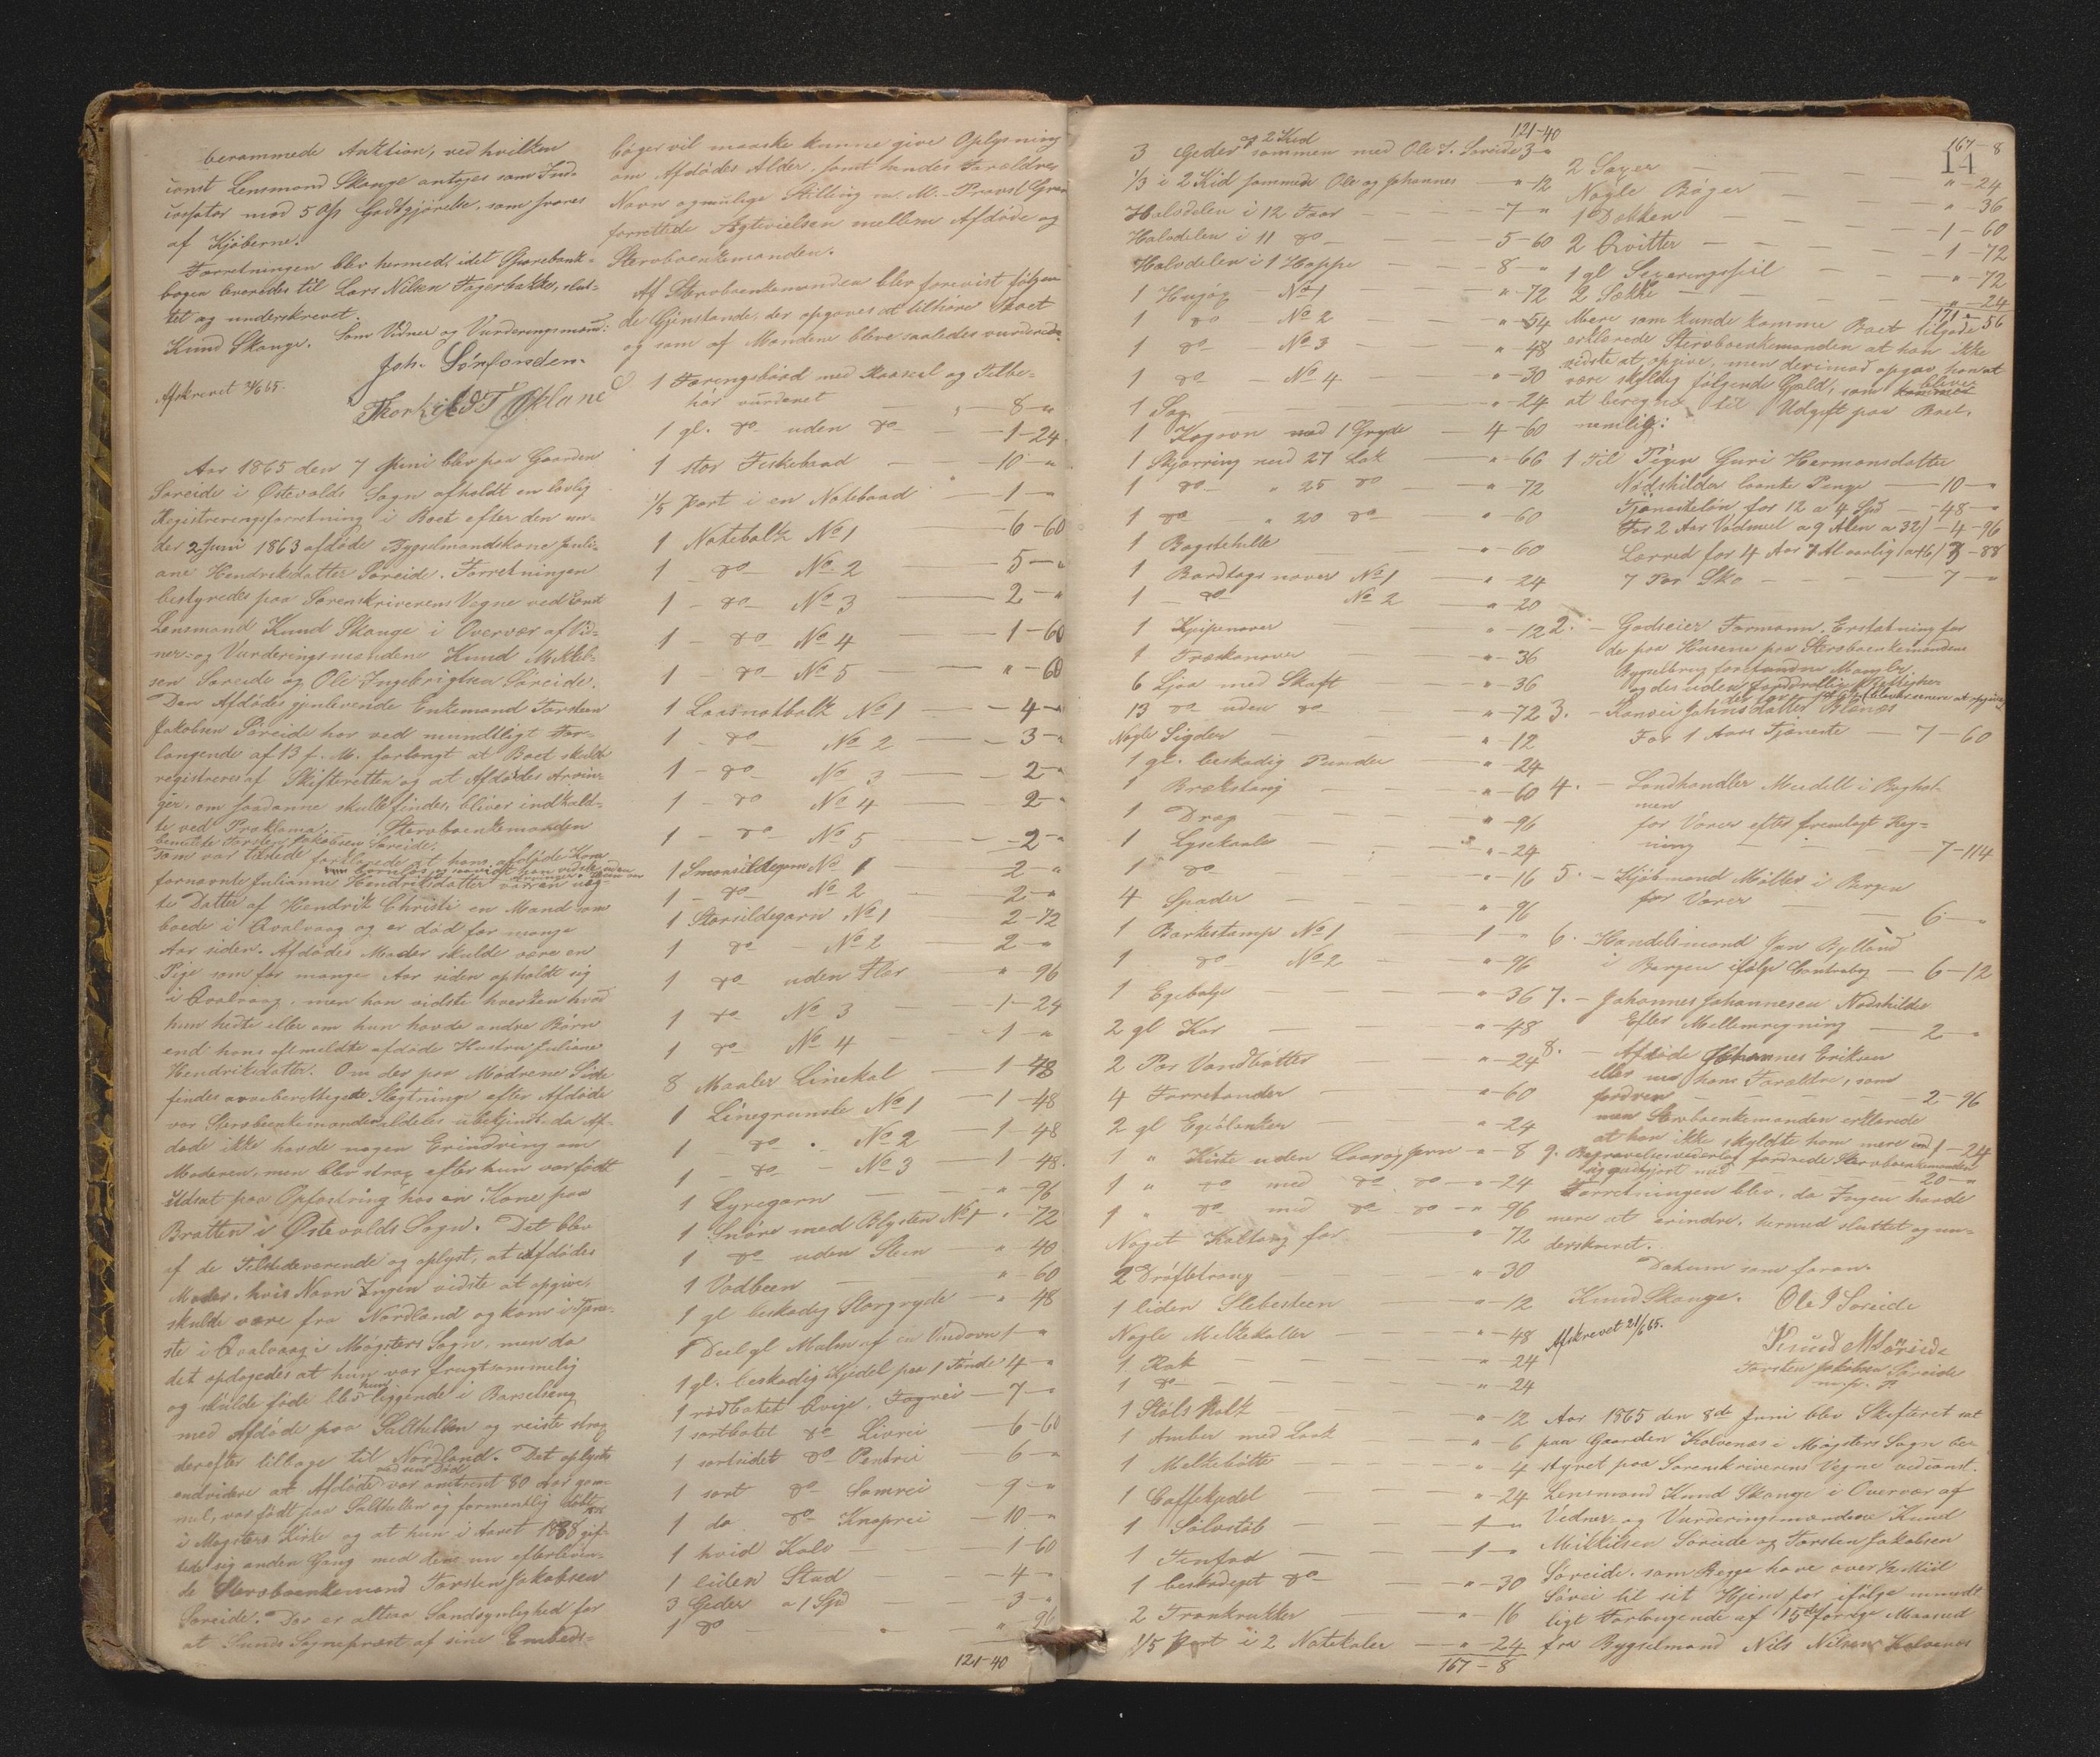 berammede Auktion, ved hvilken
const Lensmand Skauge antoges som Ind-
cassator mod 5 o/o Godtgjørelse, som svares
af Kjøberne.
Forretningen blev hermed, idet Sparebank-
bogen leveredes til Lars Nilsen Tegerbakke, slut-
tet og underskrevet.
Knud Skauge. Som Vidner og Vurderingsmænd:
Joh. Sørfonden.
Afskrevet
Aar 1865 den 7 Juni blev paa Gaarden
Søreide i Østevolds Sogn afholdt en lovlig
Registreringsforretning i Boet efter den un-
der 2 Juni 1863 afdøde Bygselmandskone Juli-
ane Hendriksdatter Søreide. Forretningen
bestyredes paa Sorenskriverens Vegne ved const
Lensmand Knud Skauge i Overvær af Vid-
ner- og Vurderingsmændene Knud Mikkel-
sen Søreide og Ole Ingebrigtsen Søreide.
Den Afdødes gjenlevende Enkemand Torsten
Jakobsen Søreide har ved mundtligt For-
langende af 13 f. M. forlangt at Boet skulde
registreres af Skifteretten og at Afdødes Arvin-
ger, om saadanne skulle findes, bliver indkald-
te ved Proklama. Stervboenkemanden
bemeldte Torsten Jakobsen Søreide,
som var tilstede forklarede at hans afdøde Kone
fornævnte Julianne Hendriksdatter var en uæg-
te Datter af Hendrik Christi en Mand som
boede i Qvalvaag og er død for mange
Aar siden. Afdødes Moder skulde være en
Pige som for mange Aar siden opholdt sig
i Qvalvaag, men han vidste hverken hvad
hun hedte eller om hun havde andre Børn
end hans ofmeldte afdøde Hustru Juliane
Hendriksdatter. Om der paa Mødrene Side
findes arveberettigede Slægtninge efter Afdøde
var Stervboenkemanden aldeles ubekjendt, da Af-
døde ikke havde nogen Erindring om
Moderen, men blev strax efter hun var født
udsat paa Opfostring hos en Kone paa
Bratten i Østevolds Sogn. Det blev
af de Tilstedeværende og oplyst, at Afdødes
Moder, hvis Navn Ingen vidste at opgive,
skulde være fra Nordland og kom i Tjene-
ste i Qvalvaag i Møgsters Sogn, men da
det opdagedes at hun var frugtsommelig
og skulde føde blev hun liggende i Barselseng
med Afdøde paa Salthellen og reiste strax
derefter tilbage til Nordland. Det oplystes
endvidere at Afdøde ved sin Død var omtrent 80 Aar gam-
mel, var født paa Salthellen og formentlig døbt
i Møgsters Kirke og at hun i Aaret 1838 gif-
tede sig anden Gang med dens nu efterleven-
de Stervboenkemand Torsten Jakobsen
Søreide. Der er altsaa Sandsynlighed for
at Sunds Sognepræst af sine Embeds-
bøger vil maaske kunne give Oplysning
om Afdødes Alder, samt hendes Forældres
Navn og mulige Stilling
forrettede Ægtevielsen mellem Afdøde og
Stervboenkemanden.
Af Stervboenkemanden blev forevist følgen-
de Gjenstande, der opgaves at tilhøre Boet
og som af Mændene bleve saaledes vurderede:
1 Færingsbaad med Raaseil og Tilbe-
hør vurderet — 8 - "
1 gl. do uden do — 1 - 24
1 stor Fiskebaad — 10 - "
1/5 Part i en Notebaad — 1 - "
1 Notebolk No 1 — 6 - 60
1 - do No 2 — 5 - "
1 - do No 3 — 2 - "
1 - do No 4 — 1 - 60
1 - do No 5 — " - 60
1 Laasnotbolk No 1 — 4 - "
1 - do No 2 — 3 - "
1 - do No 3 — 2 - "
1 - do No 4 — 2 - "
1 - do No 5 — 2 - "
1 Smaasildegarn No 1 2 - "
1 - do No 2 — 2 - "
1 Storsildegarn No 1 2 - 72
1 do - No 2 2 - "
1 do uden Fler " - 96
1 do No 3 — 1 - 24
1 do No 4 — 1 - "
8 Maaler Linekal — 1 - 48
1 Linegrunske No 1 — 1 - 48
1 - do No 2 — 1 - 48
1 - do - No 3 — 1 - 48
1 Lyregarn — " - 96
1 Snøre med Blysten No 1 " - 72
1 do uden Steen " - 40
1 Vadbeen — " - 60
1 gl beskadig Storgryde — " - 48
1 Deel gl Malm af en Vindovn 1 - "
1 gl. beskadig Kjedel paa 1 Tønde 4 - "
1 rødbotet Qvige, Fagrei — 7 - "
1 sortbotet do Livrei — 6 - 60
1 sortsidet do Penbrei — 6 - "
1 sort do Samrei — 9 - "
1 do do Knaprei — 10 - "
1 hvid Kalv — 1 - 60
1 liden Stud — 4 - "
3 Geder a 1 Spd — 3 - "
1 do — " - 96
121 - 40
121 - 40
3 Geder & 2 Kid sammen med Ole I. Søreide 3 - "
1/3 i 2 Kid sammen Ole og Johannes " - 12
Halvdelen i 12 Faar — 7 - "
Halvdelen i 11 do — 5 - 60
Halvdelen i 1 Hoppe — 8 - "
1 Hugøx - No 1 — " - 72
1 do No 2 — " - 54
1 do - No 3 — " - 48
1 do - No 4 — " - 30
1 Sag — " - 24
1 Kogovn med 1 Gryde — 4 - 60
1 Skjærring med 27 Lak — " - 66
1 do " 25 do — " - 72
1 do " 20 do — " - 60
1 Bagstehelle — " - 60
1 Bordtagsnover No 1 — " - 24
1 - do No 2 — " - 20
1 Kjipenover — " - 12
1 Træskonover — " - 36
6 Ljaa med Skaft — " - 36
13 do uden do — " - 72
Nogle Sigder — " - 12
1 gl. beskadig Punder — " - 24
1 Brækstang — " - 60
1 Drag — " - 96
1 Lysekaale — " - 24
1 do — " - 16
4 Spader — " - 96
1 Barkestamp No 1 — 1 - "
1 do No 2 — " - 96
1 Egebalje — " - 36
2 gl Kar — " - 48
2 Par Vandbøtter — " - 24
4 Tørretønder — " - 60
2 gl Egeølanker — " - 24
1 " Kiste uden Laas og Jern " - 8
1 " do med do do — " - 24
1 " do med do do — " - 96
Noget Kaltoug for — " - 72
2 Drøfteltroug — " - 30
1 liden Slebesteen — " - 12
Nogle Melkekoller — " - 48
1 Rok — " - 24
1 do — " - 24
1 Støls Kolk — " - 12
1 Amber med Laak — " - 6
1 Melkebøtte — " - 4
1 Caffekjedel — " - 24
1 Sølvstøb — 1 - "
1 Tinfad — 1 - "
1 beskadiget do — " - 30
2 Trankrukker — " - 16
1/5 Part i 2 Notekaler — " - 24
167 - 8
167 - 8
14
2 Sager — " - 24
Nogle Bøger — " - 36
1 Dækken — 1 - 60
2 Qvitter — 1 - 72
1 gl Segeringsseil — " - 72
2 Sække — " - 24
171 - 56
Mere som kunde komme Boet tilgode
erklærede Stervboenkemanden at han ikke
vidste at opgive, men derimod opgav han at
være skyldig følgende Gjæld, som bliver
at beregnes til Udgift paa Boet,
nemlig:
1 Til Pigen Guri Hermansdatter
Nødskilder laante Penge — 10 - "
Tjenesteløn for 12 a 4 Spd — 48 - "
For 2 Aar Vadmeel a 9 Alen a 32/ - 4 - 96
Lærred for 14 Aar 7 Al aarlig
7 Par Sko — 7 - "
2. - Godseier Formann. Erstatning for
de paa Husene paa Stervboenkemandens
Bygselbrug forefundne Mangler
3. - Ransei Johnsdatter
For 1 Aars Tjeneste — 7 - 60
4. - Landhandler Meidell i Bagholmen
for Varer efter fremlagt Reg-
ning — 7 - 114
5. - Kjøbmand Møller i Bergen
for Varer — 6 - "
6. - Handelsmand Jan Bylland
i Bergen ifølge Contrabog — 6 - 12
7. - Johannes Johannesen Nødskilder
Efter Mellemregning — 2 - "
8. - Afdøde Johannes Eriksen
eller nu hans Forældre, som
fordrer — 2 - 96
men Stervboenkemanden erklærede
at han ikke skyldte ham mere end 1 - 24
9. Begravelsesvederlag fordrede Stervboenkemanden
sig godtgjort med — 20 - "
Forretningen blev, da Ingen havde
mere at erindre, hermed sluttet og un-
derskrevet.
Datum som foran.
Knud Skauge. Ole I Søreide
Afskrevet 21/6 65.
Knud M Søreide
Torsten Jakobsen Søreide
m. p. P.
Aar 1865 den 8de Juni blev Skifteret sat
paa Gaarden Kalvenæs i Møgsters Sogn be-
styret paa Sorenskriverens Vegne ved const.
Lensmand Knud Skauge i Overvær af
Vidner- og Vurderingsmændene Knud
Mikkelsen Søreide og Torsten Jakobsen
Søreide, som begge have over 1/2 Miil
Søvei til sit Hjem for, ifølge mundt-
ligt Forlangende af 15de forrige Maaned
fra Bygselmand Nils Nilsen Kalvenæs